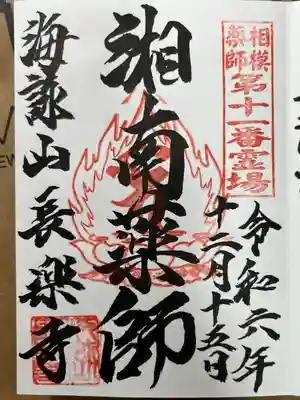 相模
薬師
第十一番霊場
令和六年
十二月十五日
湘南薬師
海詠山長楽寺